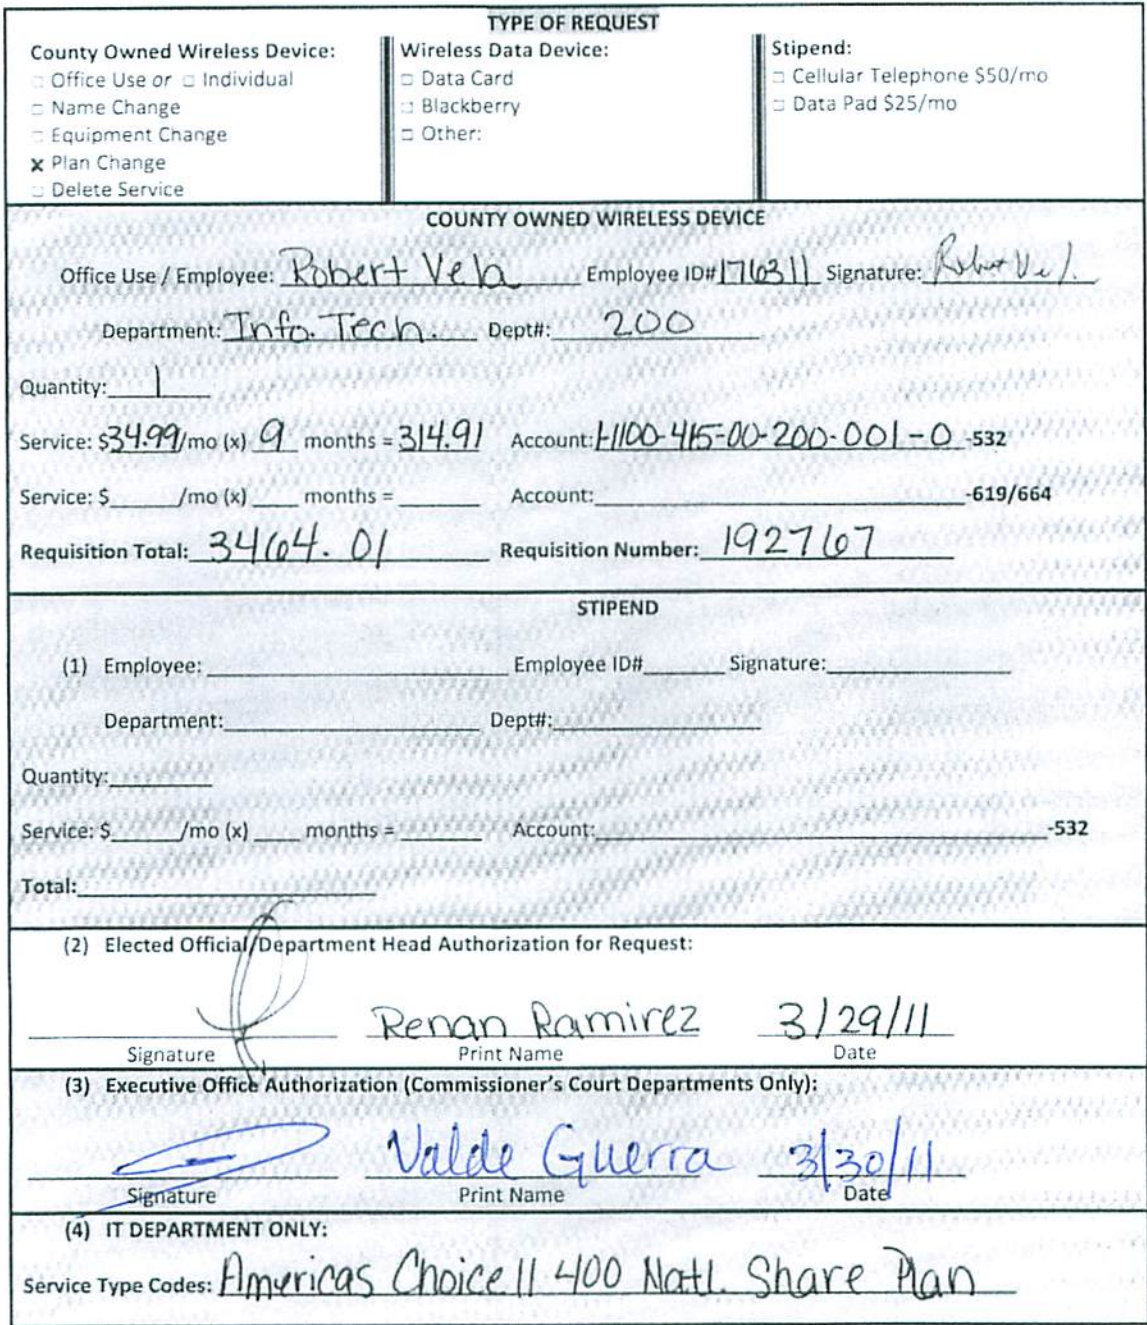 TYPE OF REQUEST
County Owned Wireless Device:
□ Office Use or □ Individual
□ Name Change
□ Equipment Change
x Plan Change
□ Delete Service
Wireless Data Device:
□ Data Card
□ Blackberry
□ Other:
Stipend:
□ Cellular Telephone $50/mo
□ Data Pad $25/mo
COUNTY OWNED WIRELESS DEVICE
Office Use / Employee: Robert Vela Employee ID# 176311 Signature: Robert Vela
Department: Info. Tech. Dept#: 200
Quantity: 1
Service: $34.99/mo (x) 9 months = 314.91 Account: 1-1100-415-00-200-001-0 -532
Service: $ /mo (x) months = Account: -619/664
Requisition Total: 3464.01 Requisition Number: 192767
STIPEND
(1) Employee: Employee ID# Signature:
Department: Dept#:
Quantity:
Service: $ /mo (x) months = Account: -532
Total:
(2) Elected Official/Department Head Authorization for Request:
Renan Ramirez 3/29/11
Signature Print Name Date
(3) Executive Office Authorization (Commissioner's Court Departments Only):
Valde Guerra 3/30/11
Signature Print Name Date
(4) IT DEPARTMENT ONLY:
Service Type Codes: Americas Choice II 400 Natl. Share Plan